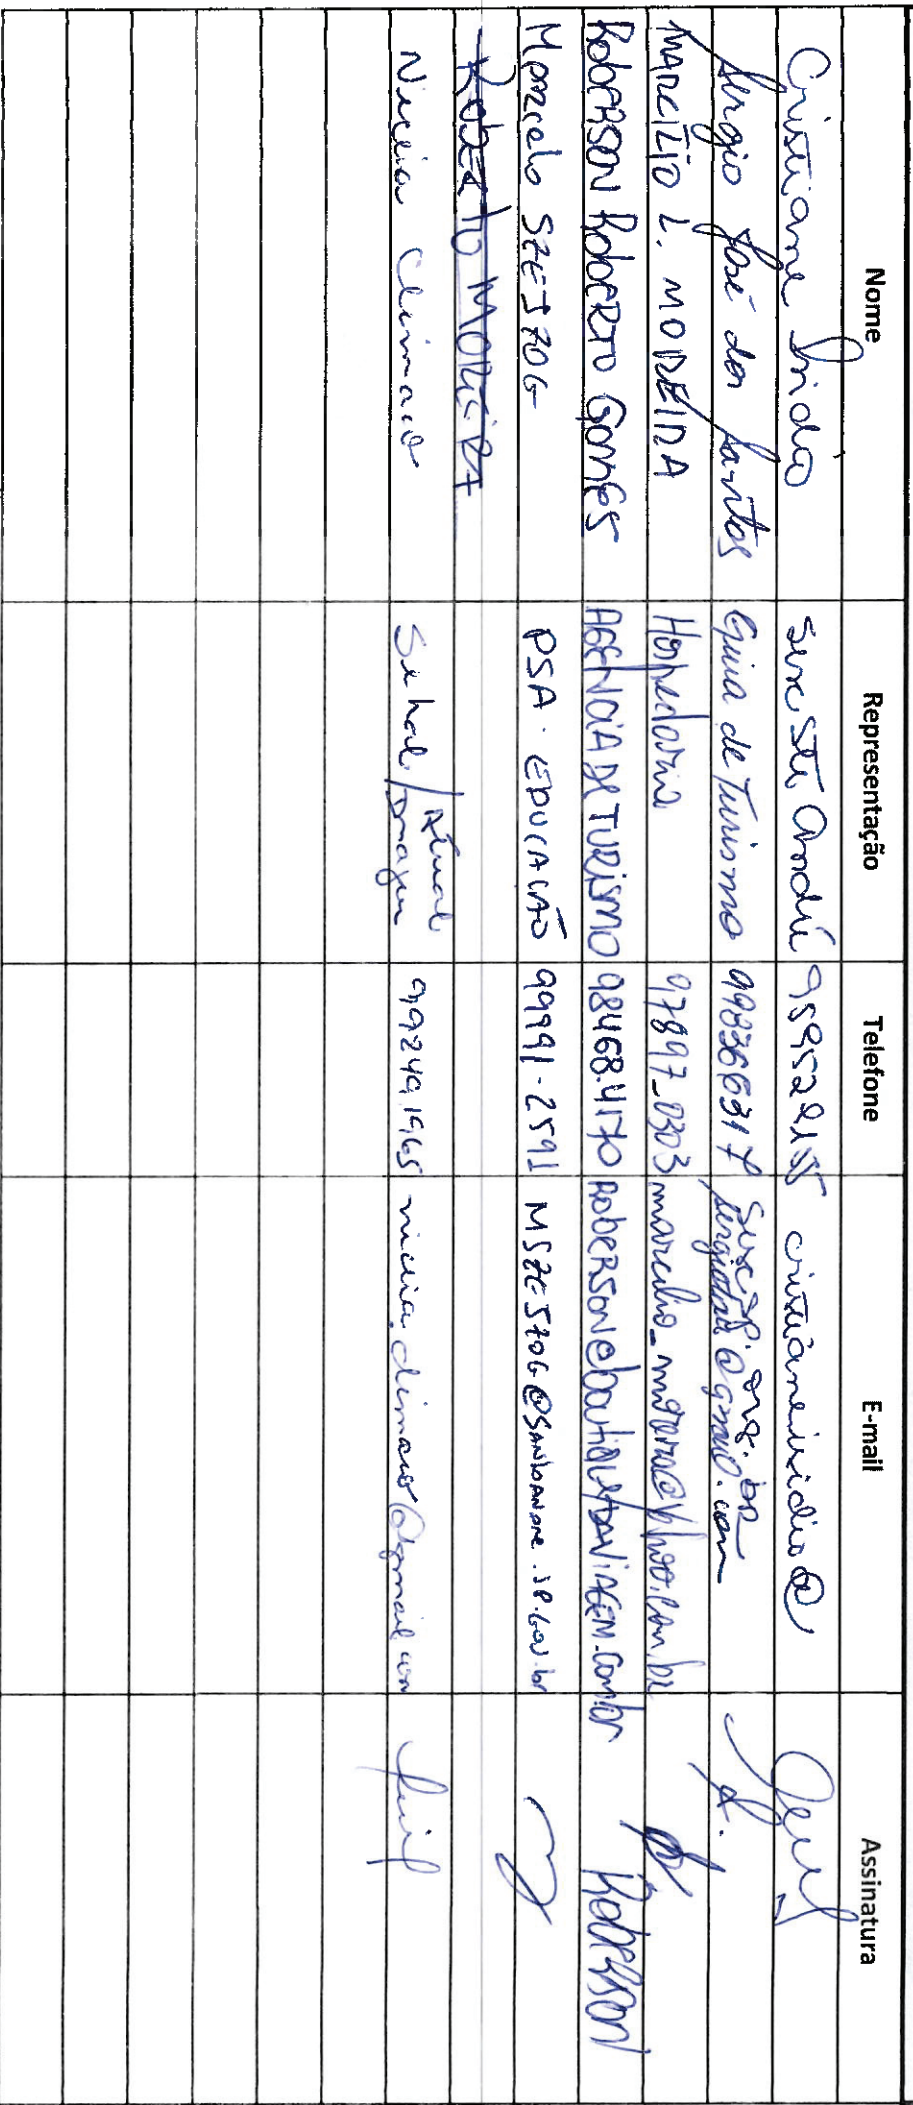 Nome Representação Telefone E-mail Assinatura
Cristiane Isidio Sesc Sto André 959529155 cristianeisidio@
sescsp.org.br
Sergio José dos Santos Guia de Turismo 998366317 @gmail.com
MARCÍLIO L. MOREIRA Hospedaria 97897-0303 marcilio_moreira@yahoo.com.br
RobERSON RobERTO GomES AGENCIA DE TURISMO 98468.4170 RobERSON@ VIAGEM.Com.br RobERSON
Marcelo SZEJZOG PSA. EDUCAÇÃO 99991-2591 MSZEJZOG@SANTOANDRE.SP.GOV.br
RobERTO MOREIRA
Nicéia Climaco Sehal/ Atual
Imagem 992491965 niceia.climaco@gmail.com